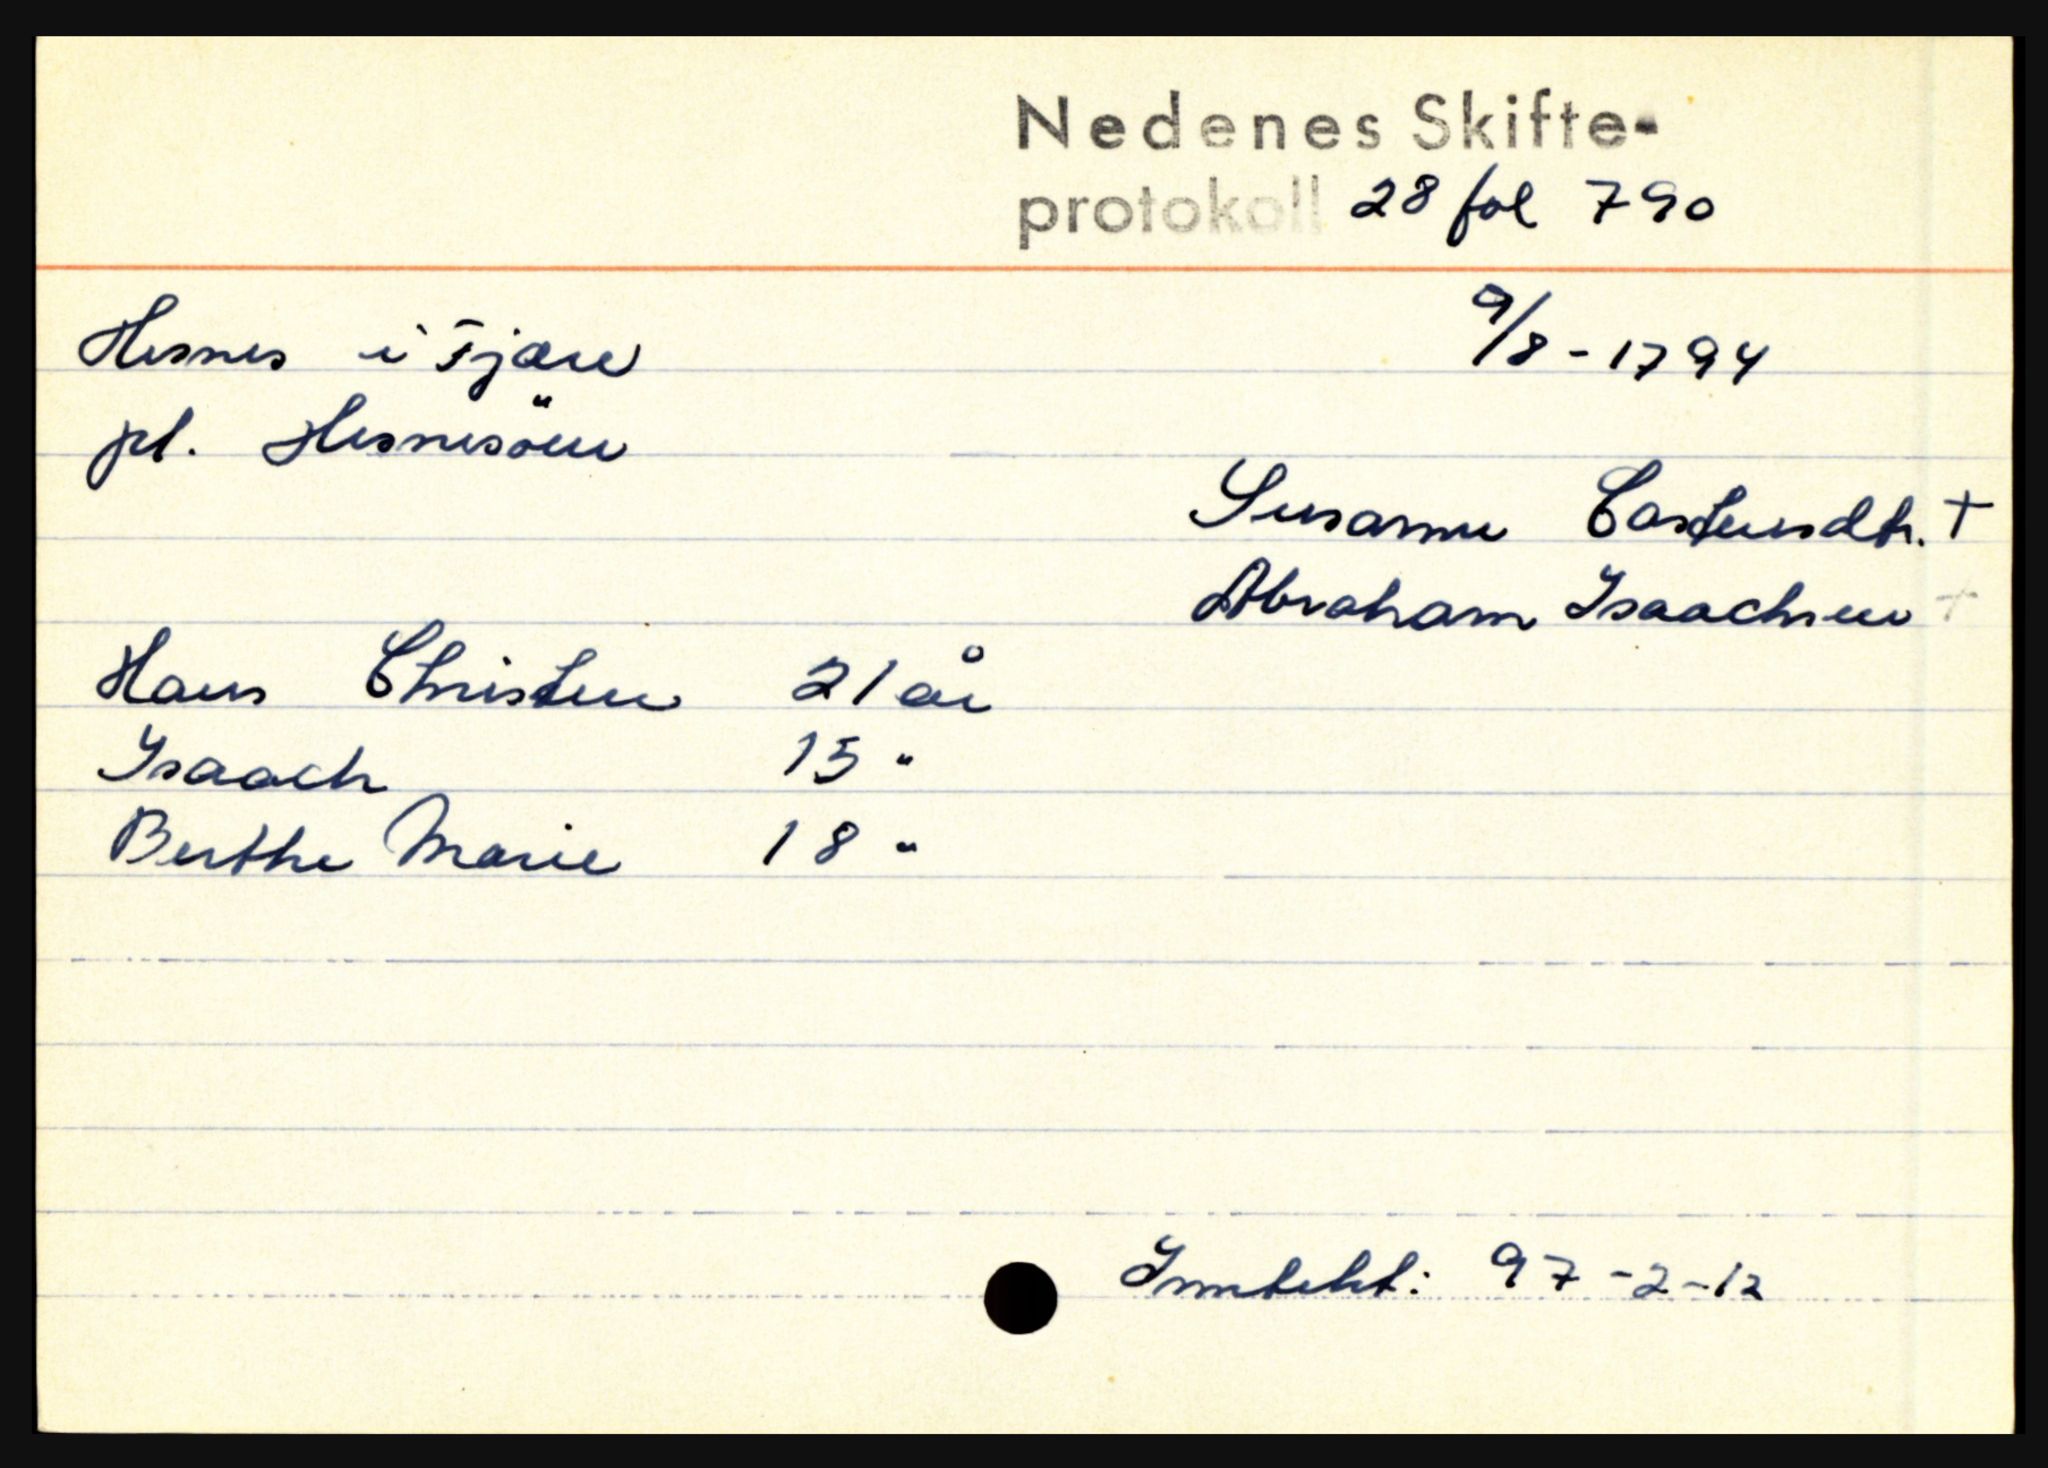 Nedenes Skifte-
protokoll 28 fol 790
Hesnes i Fjære 9/8 - 1794
pl. Hesnesöen
Susanne Castensdtr. +
Abraham Isaachsen +
Hans Christen 21 år
Isaach 15 "
Berthe Marie 18 "
Inntekt: 97 - 2 - 12